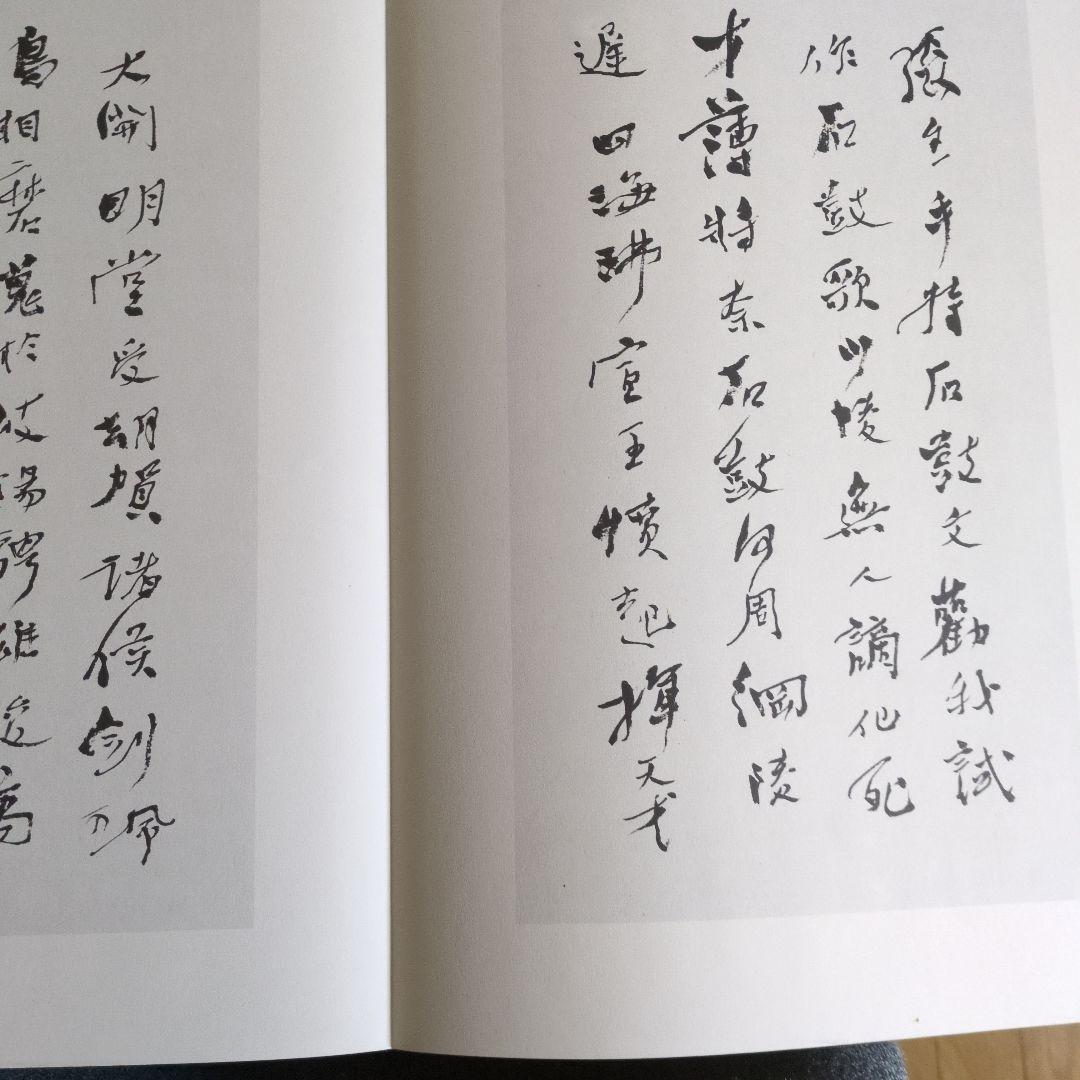 張生手持石鼓文勸我試
作石鼓歌少陵無人謫仙死
才薄將奈石鼓何周綱陵
遲四海沸宣王憤起揮天戈
大開明堂受朝賀諸侯劍珮
鳴相磨蒐於岐陽騁雄俊萬